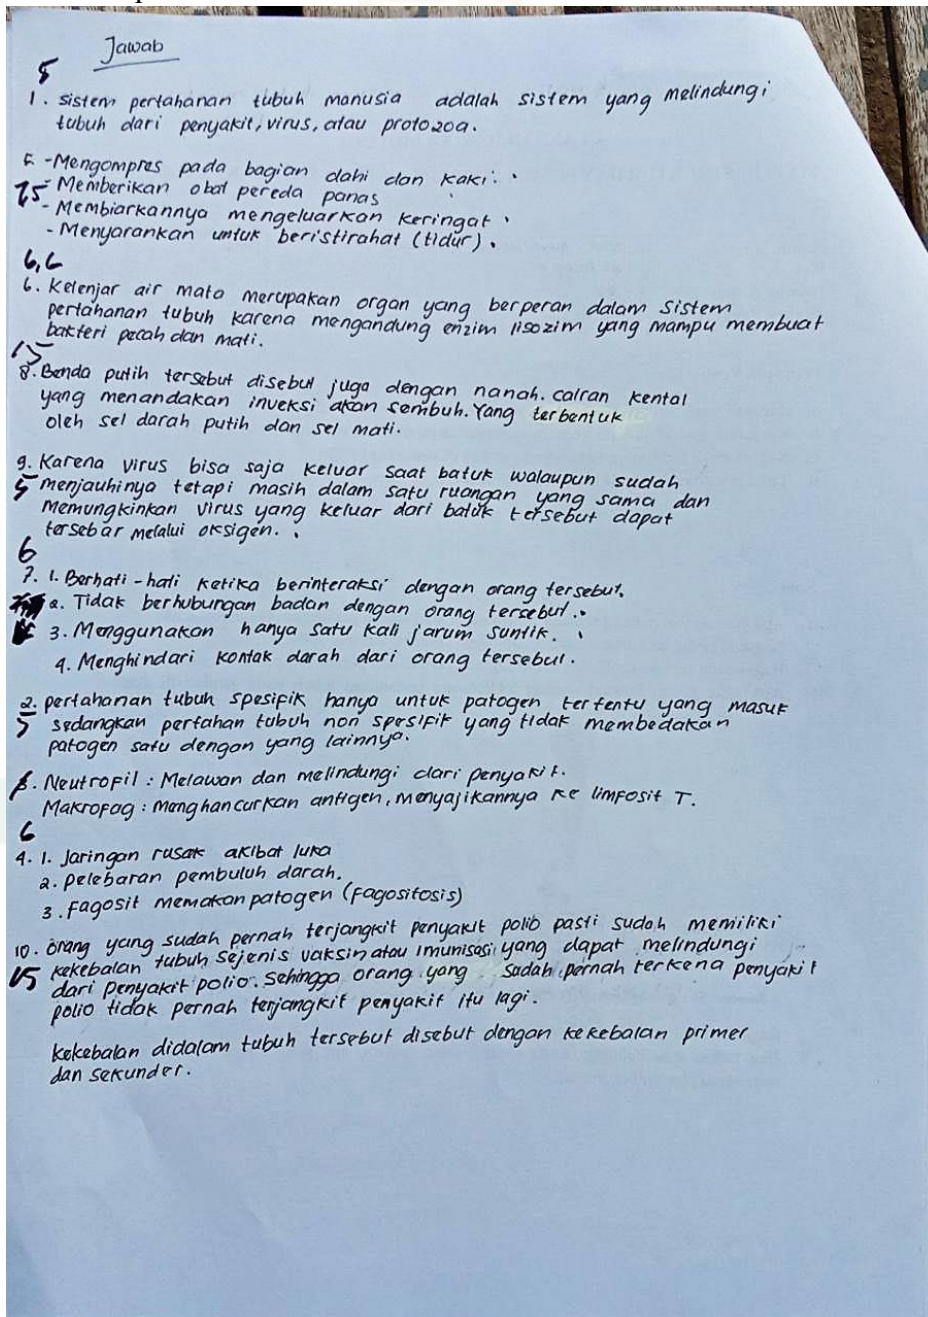 Jawab
5
1. sistem pertahanan tubuh manusia adalah sistem yang melindungi
tubuh dari penyakit, virus, atau protozoa.
5. -Mengompres pada bagian dahi dan kaki.
- Memberikan obat pereda panas
- Membiarkannya mengeluarkan keringat
- Menyarankan untuk beristirahat (tidur).
6. Kelenjar air mata merupakan organ yang berperan dalam sistem
pertahanan tubuh karena mengandung enzim lisozim yang mampu membuat
bakteri pecah dan mati.
15
8. Benda putih tersebut disebut juga dengan nanah. cairan kental
yang menandakan inveksi akan sembuh. Yang terbentuk
oleh sel darah putih dan sel mati.
9. Karena virus bisa saja keluar saat batuk walaupun sudah
5 menjauhinya tetapi masih dalam satu ruangan yang sama dan
Memungkinkan virus yang keluar dari batuk tersebut dapat
tersebar melalui oksigen.
6
7. 1. Berhati-hati ketika berinteraksi dengan orang tersebut.
2. Tidak berhubungan badan dengan orang tersebut.
3. Menggunakan hanya satu kali jarum suntik.
4. Menghindari kontak darah dari orang tersebut.
2. pertahanan tubuh spesipik hanya untuk patogen tertentu yang masuk
5 sedangkan pertahan tubuh non spesifik yang tidak membedakan
patogen satu dengan yang lainnya.
3. Neutrofil : Melawan dan melindungi dari penyakit.
Makrofag : menghancurkan antigen, menyajikannya ke limfosit T.
6
4. 1. Jaringan rusak akibat luka
2. pelebaran pembuluh darah.
3. fagosit memakan patogen (fagositosis)
10. orang yang sudah pernah terjangkit penyakit polio pasti sudah memiliki
kekebalan tubuh sejenis vaksin atau imunisasi yang dapat melindungi
dari penyakit polio. Sehingga orang yang sudah pernah terkena penyakit
polio tidak pernah terjangkit penyakit itu lagi.
kekebalan didalam tubuh tersebut disebut dengan kekebalan primer
dan sekunder.